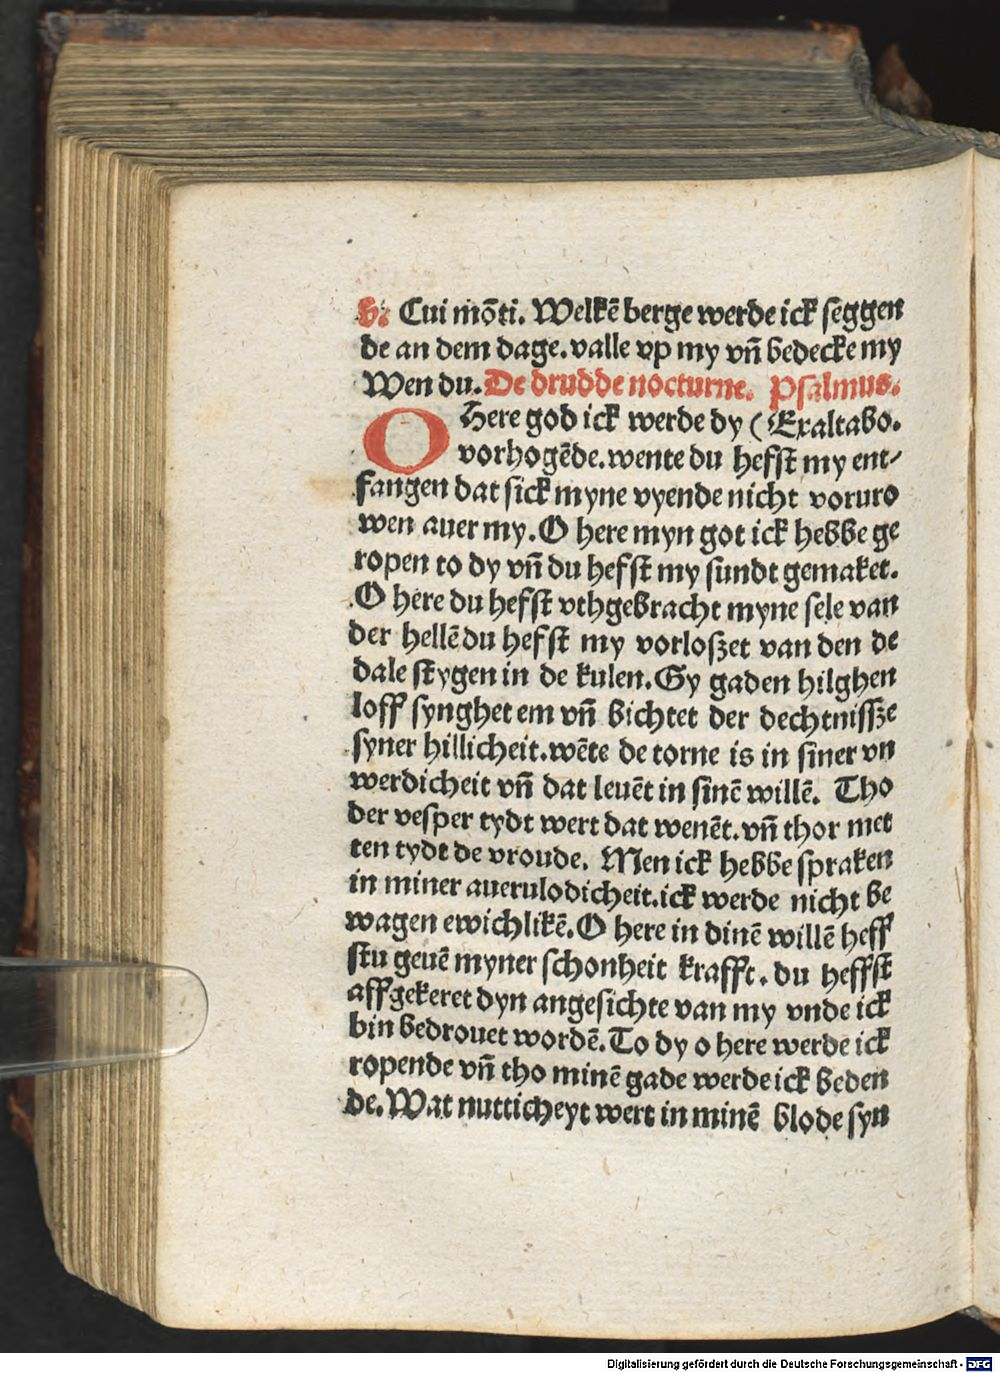 V. Cui mõti. Welkẽ berge werde ick seggen
de an dem dage. valle vp my vñ bedecke my
Wen du. De drudde nocturne. Psalmus.
O Here god ick werde dy (Exaltabo.
vorhogẽde. wente du hefst my ent⸗
fangen dat sick myne vyende nicht voruro
wen auer my. O here myn got ick hebbe ge
ropen to dy vñ du hefst my sundt gemaket.
O here du hefst vthgebracht myne sele van
der hellẽ du hefst my vorloszet van den de
dale stygen in de kulen. Gy gaden hilghen
loff synghet em vñ bichtet der dechtnissze
syner hillicheit. wẽte de torne is in siner vn
werdicheit vñ dat leuẽt in sinẽ willẽ. Tho
der vesper tydt wert dat wenẽt. vñ thor met
ten tydt de vroude. Men ick hebbe spraken
in miner auerulodicheit. ick werde nicht be
wagen ewichlikẽ. O here in dinẽ willẽ heff
stu geuẽ myner schonheit krafft. du heffst
affgekeret dyn angesichte van my vnde ick
bin bedrouet wordẽ. To dy o here werde ick
ropende vñ tho minẽ gade werde ick beden
de. Wat nutticheyt wert in minẽ blode syn
Digitalisierung gefördert durch die Deutsche Forschungsgemeinschaft - DFG